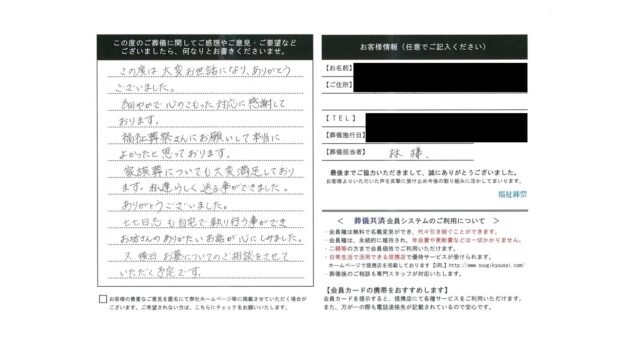 この度のご葬儀に関してご感想やご意見・ご要望など
ございましたら、何なりとお書きくださいませ。
この度は大変お世話になり、ありがとう
ございました。
細やかで心のこもった対応に感謝して
おります。
福祉葬祭さんにお願いして本当に
よかったと思っております。
家族葬についても大変満足しており
ます。私達らしく送る事ができました。
ありがとうございました。
七七日忌も自宅で執り行う事ができ
お坊さんのありがたいお話が心にしみました。
又、後日お墓についてのご相談をさせて
いただく予定です。
お客様の貴重なご意見を匿名にて弊社ホームページ等に掲載させていただく場合が
ございます。ご希望されない方は、こちらにチェックをお願いします。
お客様情報(任意でご記入ください)
【お名前】
【ご住所】
【TEL】
【葬儀施行日】
【葬儀担当者】 林様.
最後までご協力いただきまして、誠にありがとうございました。
お客様よりいただいた声を真摯に受け止め今後の取り組みに活かしてまいります。
福祉葬祭
< 葬儀共済 会員システムのご利用について >
・会員権は無料で名義変更ができ、代々引き継ぐことができます。
・会員権は、永続的に維持され、年会費や更新費などは一切かかりません。
・二親等の方まで会員価格でご利用いただけます。
・日常生活で活用できる提携店で優待サービスが受けられます。
ホームページで提携店を掲載しております【URL】http://www.sougikyousai.com/
・葬儀後のご相談も専門スタッフが対応いたします。
【会員カードの携帯をおすすめします】
会員カードを提示すると、提携店にて各種サービスをご利用いただけます。
また、万が一の際も電話連絡先が記載されているので安心です。